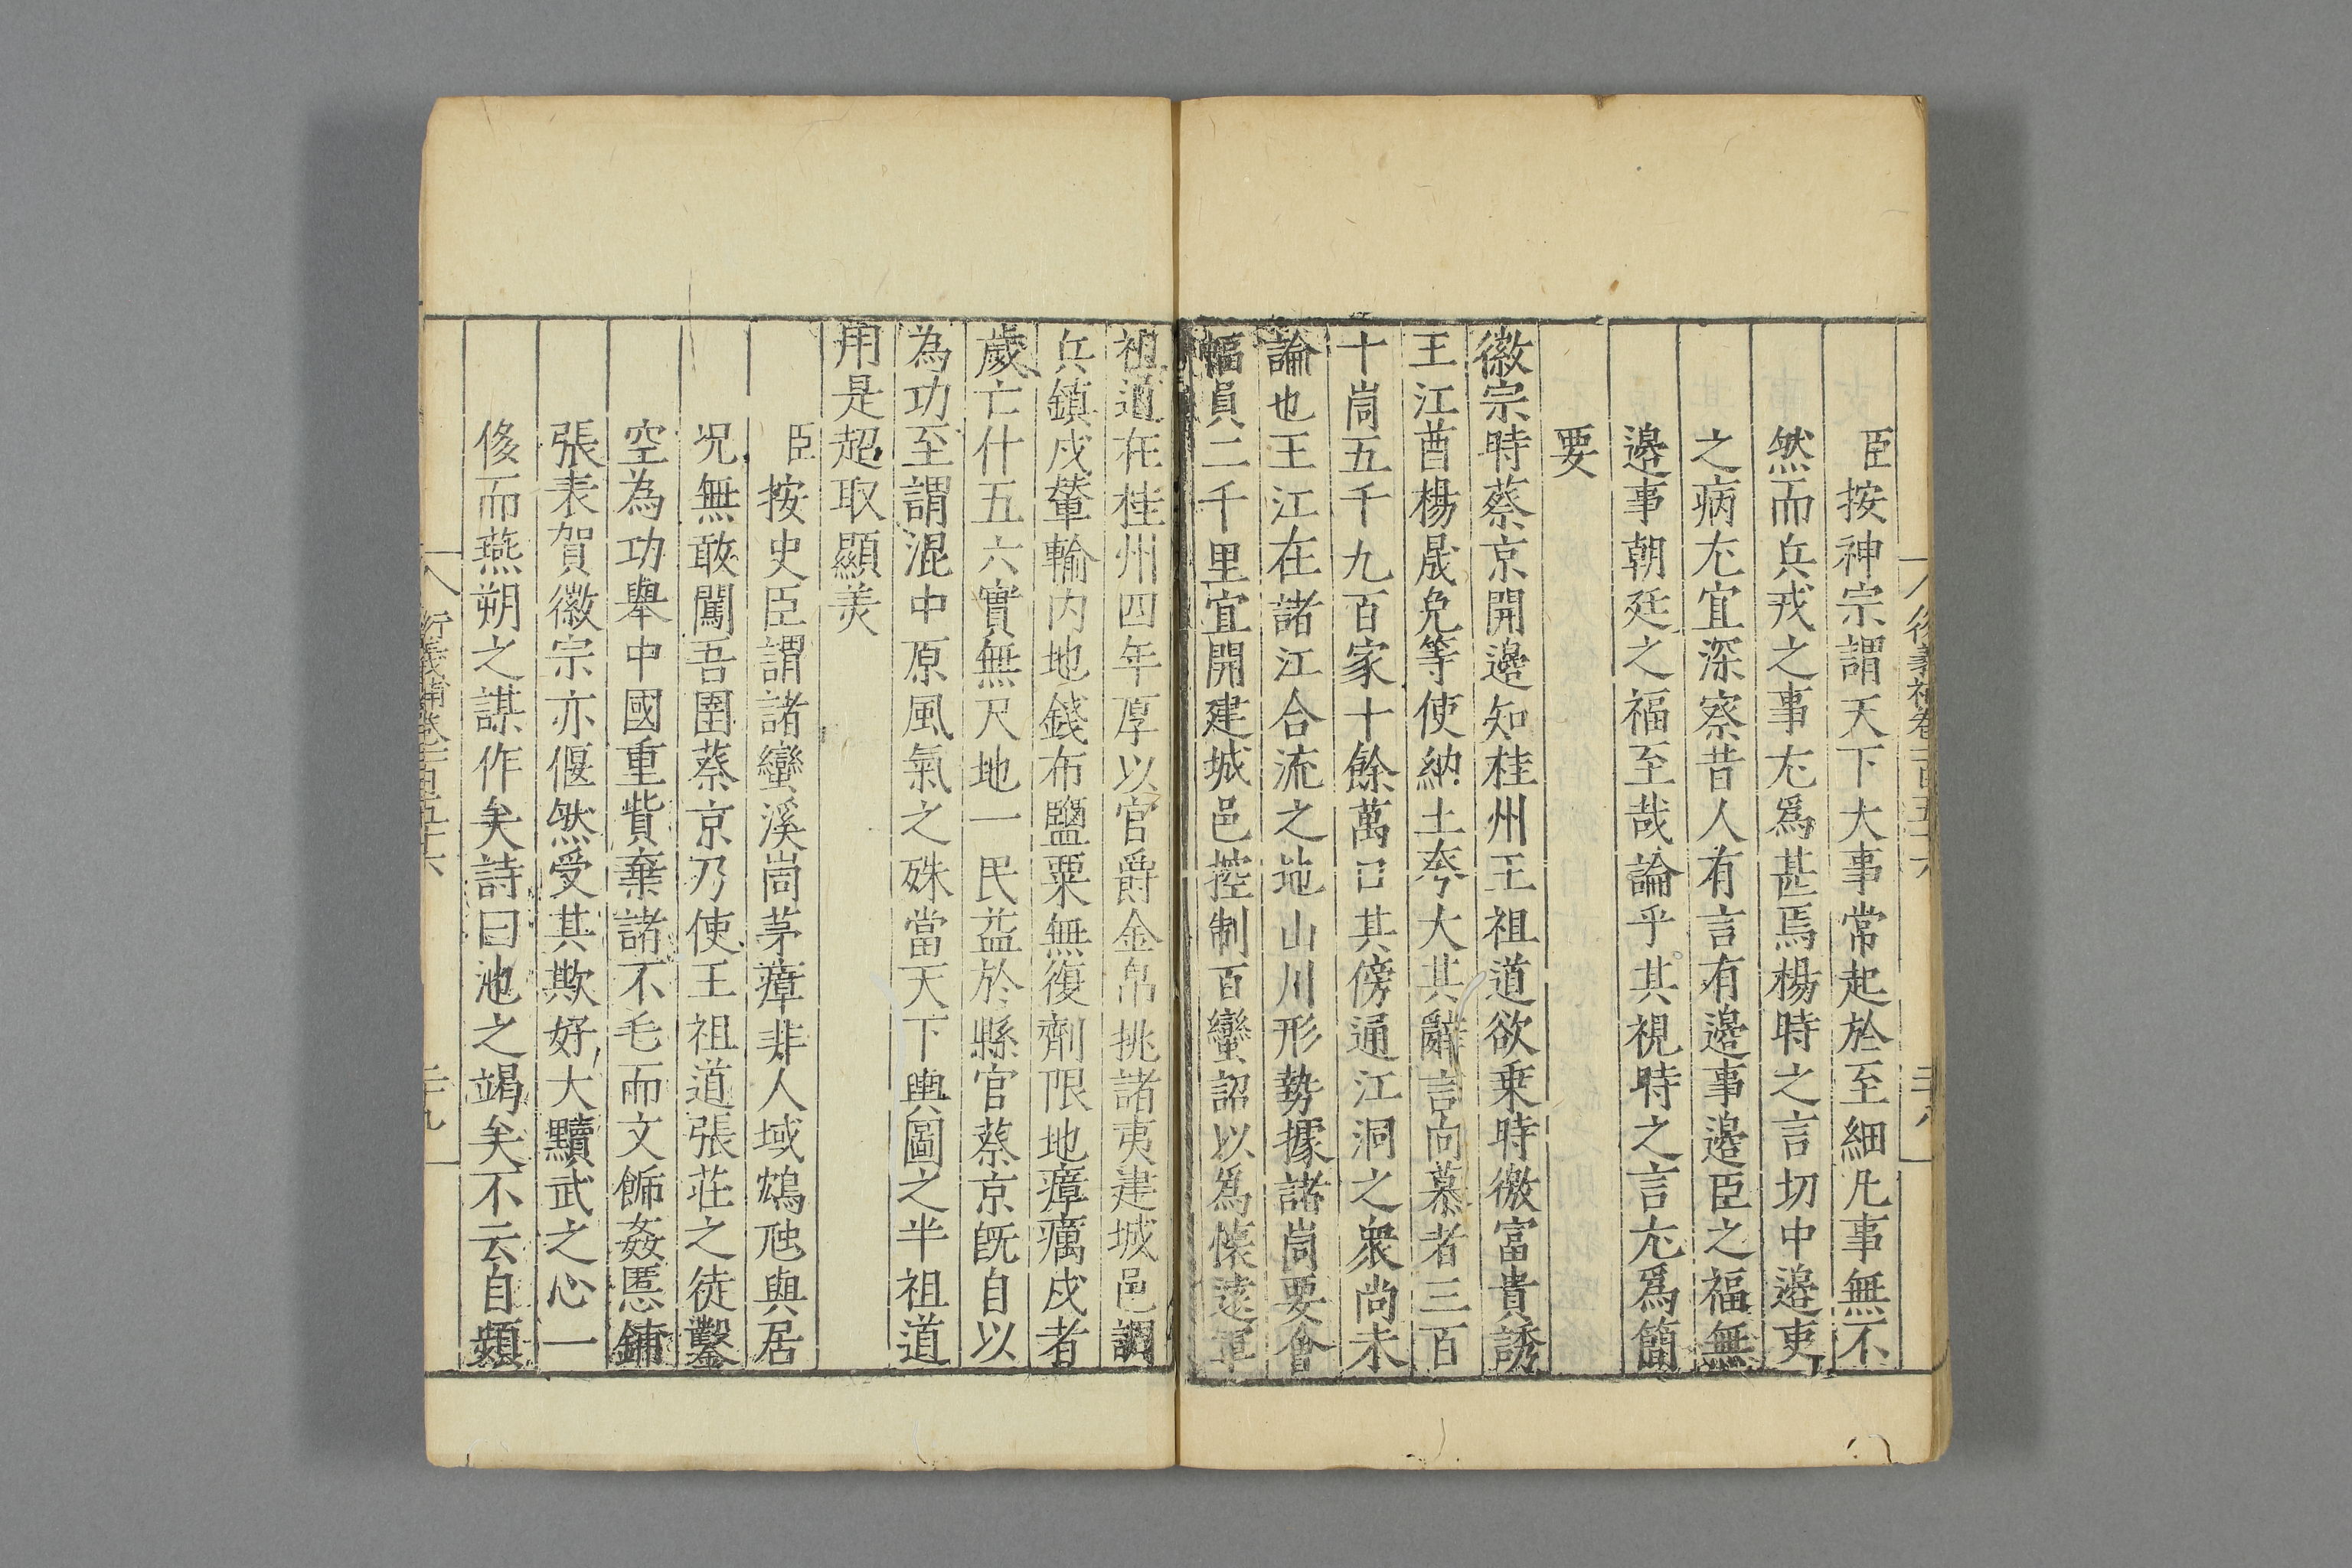 臣按神宗謂天下大事常起於至細凡事無不
然而兵戎之事尤爲甚焉楊時之言切中邉吏
之病尤宜深察昔人有言有邉事邉臣之福無
邉事朝廷之福至哉論乎其視時之言尤爲簡
要
徽宗時蔡京開邉知桂州王祖道欲乗時徼富貴誘
王江酋楊晟免等使納土夸大其辭言向慕者三百
十峝五千九百家十餘萬口其傍通江洞之衆尚未
論也王江在諸江合流之地山川形勢據諸峝要會
幅員二千里宜開建城邑控制百蠻詔以爲懐逺軍
祖道在桂州四年厚以官爵金帛挑諸夷建城邑調
兵鎮戍輦輸内地錢布鹽粟無復劑限地瘴癘戍者
歲亡什五六實無尺地一民益於縣官蔡京旣自以
為功至謂混中原風氣之殊當天下輿圖之半祖道
用是超取顯美
臣按史臣謂諸蠻溪峝茅瘴非人域鴆虺與居
况無敢闖吾圉蔡京乃使王祖道張莊之徒鑿
空為功舉中國重貲棄諸不毛而文飾姦慝鋪
張表賀徽宗亦偃然受其欺好大黷武之心一
侈而燕朔之謀作矣詩曰池之竭矣不云自頻
衍義補卷一百五十六 二十九